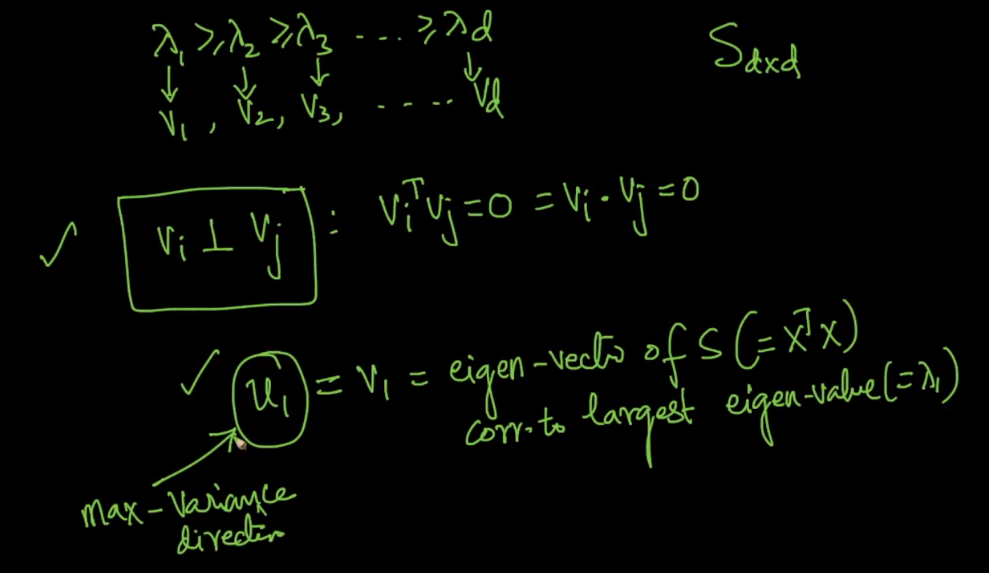 λ₁ ≥ λ₂ ≥ λ₃ .... ≥ λd
↓ ↓ ↓ ↓
V₁, V₂, V₃, ..... Vd
Sdxd
✓ Vi ⊥ Vj : ViᵀVj = 0 = Vi · Vj = 0
✓ U₁ = V₁ = eigen-vector of S (= XᵀX)
corr. to largest eigen-value (= λ₁)
max-variance
direction